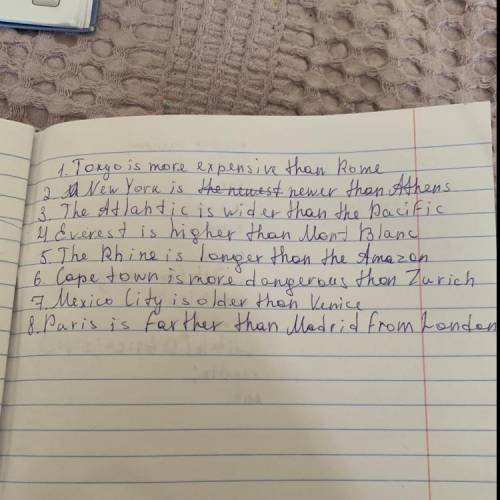 1. Tokyo is more expensive than Rome
2 New York is the newest newer than Athens
3. The Atlantic is wider than the Pacific
4 Everest is higher than Mont Blanc
5 The Rhine is longer than the Amazon
6. Cape town is more dangerous than Zurich
7. Mexico City is older than Venice
8. Paris is farther than Madrid from London